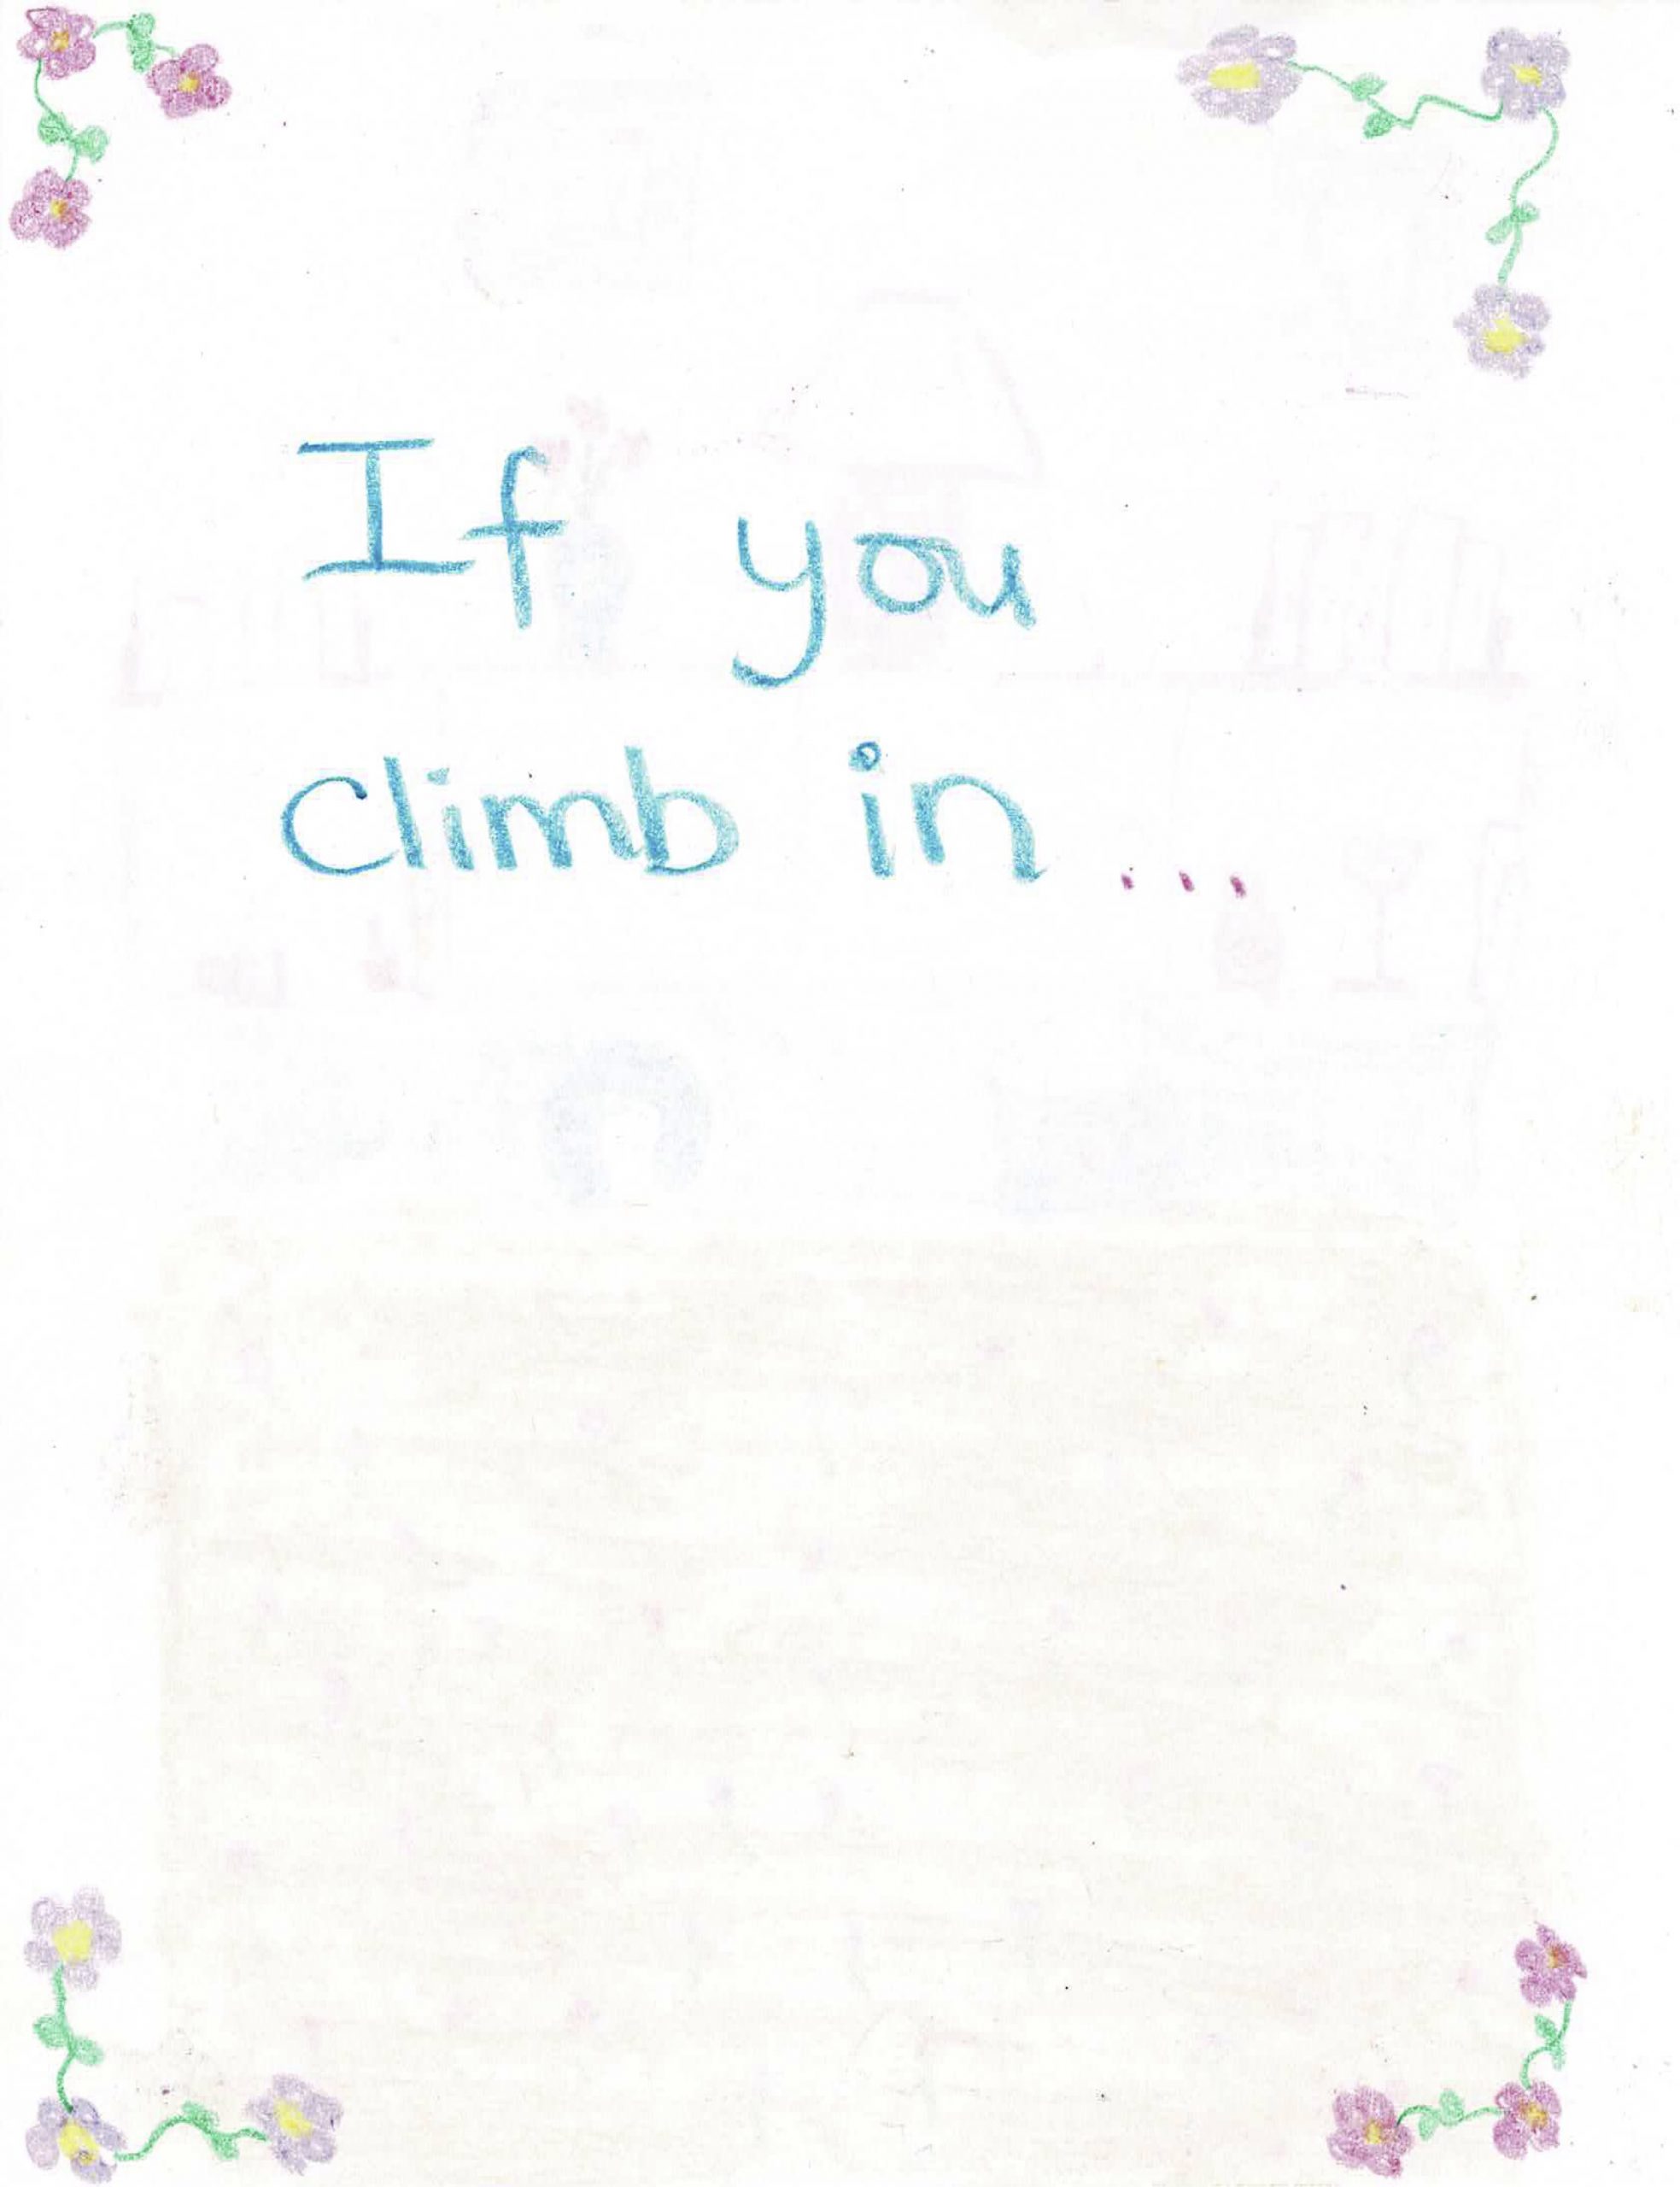 If you
climb in...